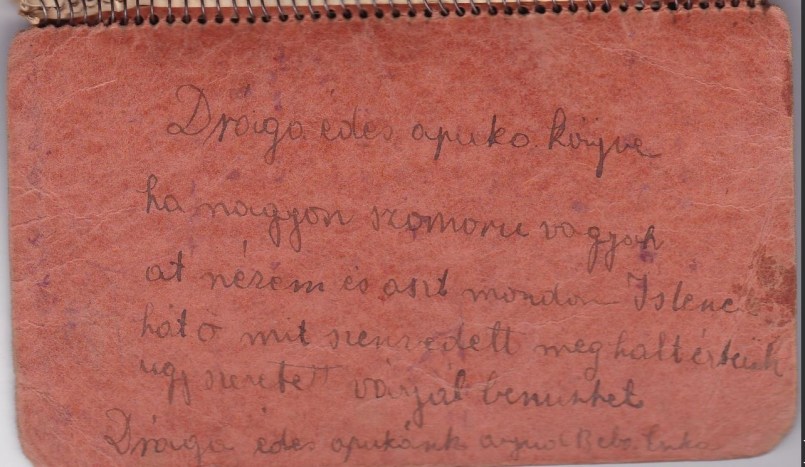 Drága édes apuka könyve
ha nagyon szomoru vagyok
át nézem és aszt mondom Istenem
hát ő mit szenvedett meghalt értünk
ugy szeretett várjál benünket
Drága édes apukánk anyud Beba